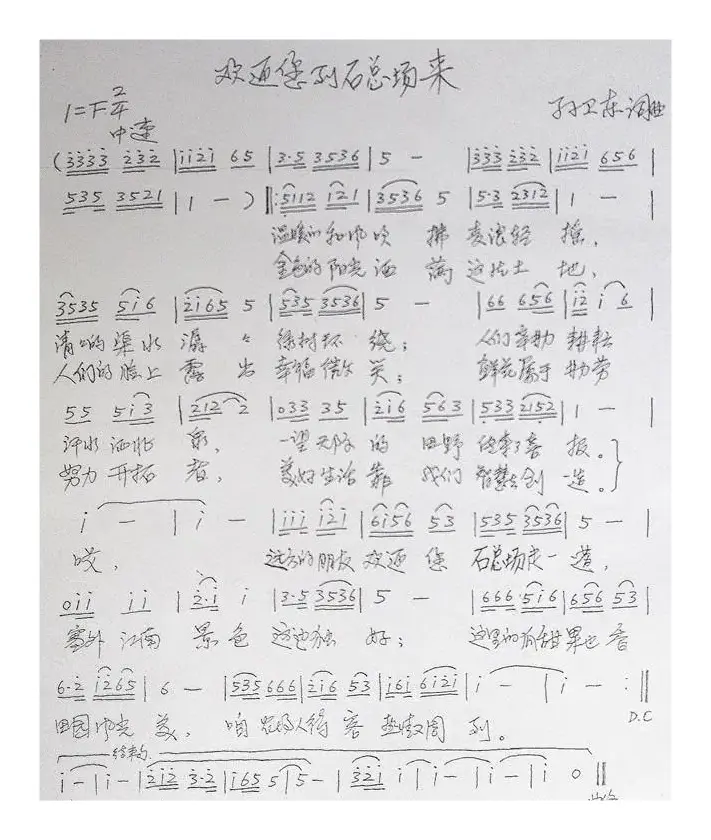 欢迎您到石总场来
1=F 2/4
中速
孙卫东词曲
(3333 232 | 1121 65 | 3·5 3536 | 5 - | 333 232 | 1121 656 |
535 3521 | 1 - ) ‖: 5112 121 | 3536 5 | 5·3 2312 | 1 - |
温暖的和风吹拂麦浪轻摇,
金色的阳光洒满这片土地,
3535 516 | 2165 5 | 535 3536 | 5 - | 66 656 | 12 1 6 |
清清的渠水潺潺绿树环绕; 人们辛勤耕耘
人们的脸上露出幸福微笑; 鲜花属于勤劳
55 513 | 212 2 | 033 35 | 216 563 | 533 2152 | 1 - |
汗水洒 , 一望无际的田野 喜报。
努力开拓者, 美好生活靠我们智慧去创造。
1 - | 1 - | 111 121 | 6156 53 | 535 3536 | 5 - |
哎, 远方的朋友欢迎您石总场走一遭,
011 11 | 2·1 1 | 3·5 3536 | 5 - | 666·516 | 656 53 |
塞外江南景色这边独好; 这里的瓜甜果也香
6·2 1265 | 6 - | 535 666 | 216 53 | 161 6121 | 1 - | 1 - :‖
D.C
田园风光美, 咱总场人待客热情周到。
结束句
1 - | 1 - | 212 3·2 | 165 5 | 5 - | 321 1 | 1 - | 1 - | 1 0 ‖